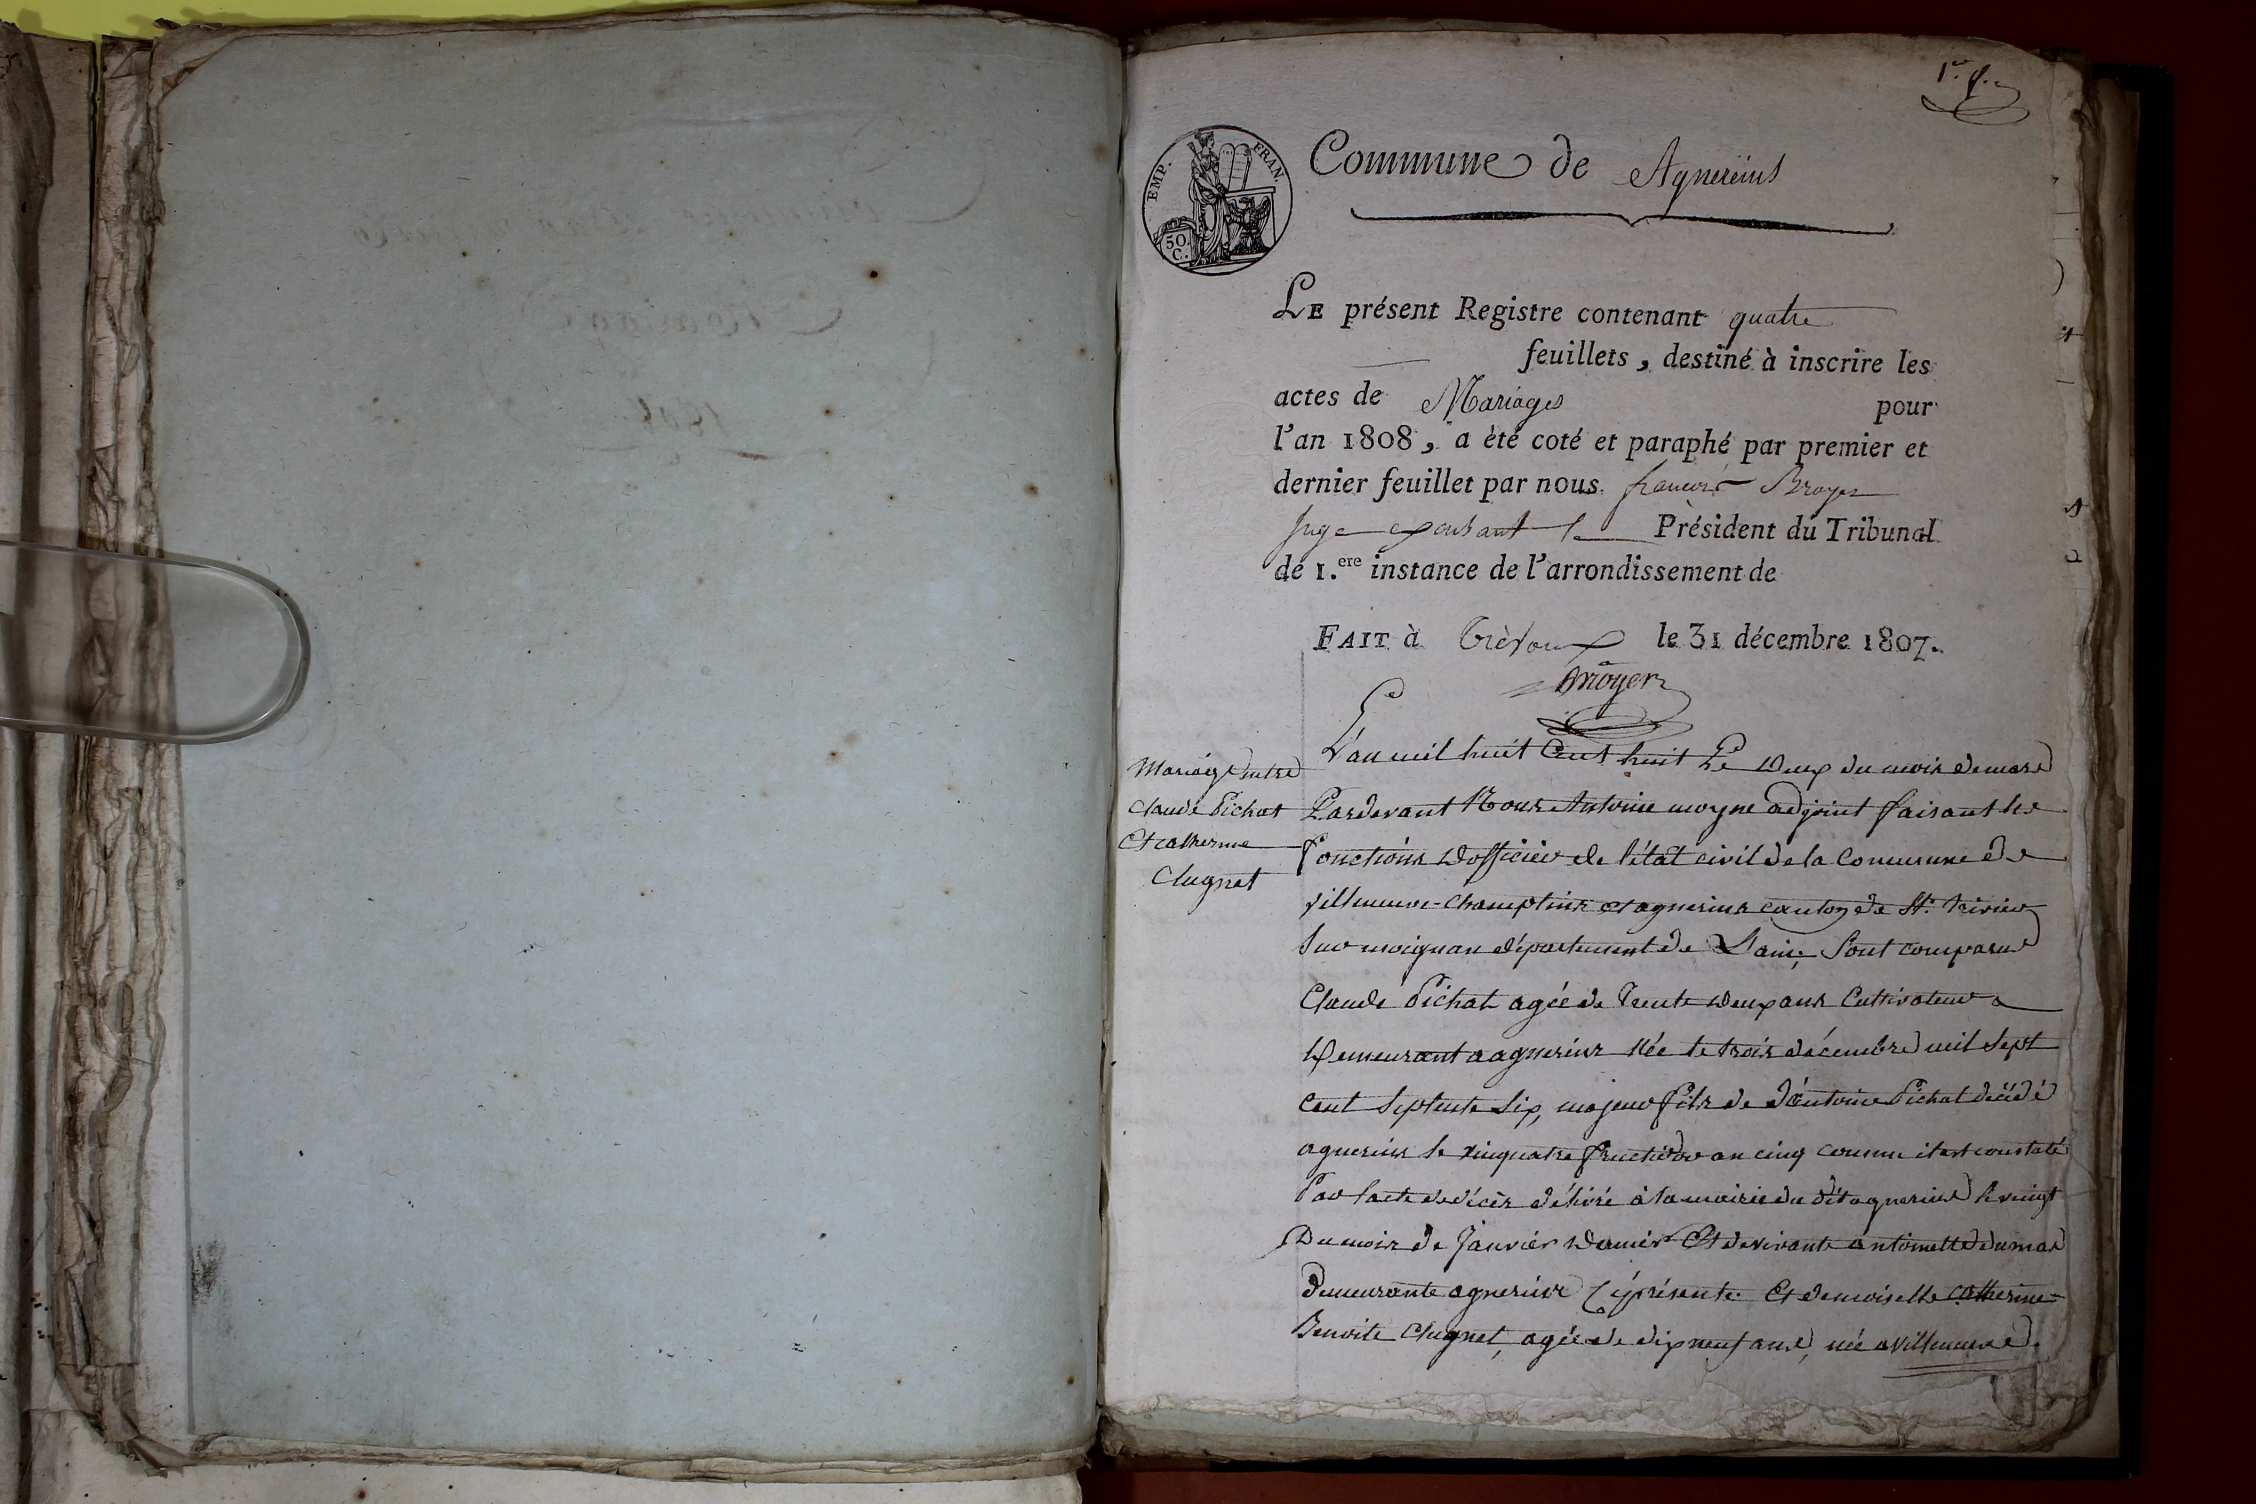 1er f.
EMP. FRAN.
50 C.
Commune de Agnereins
LE présent Registre contenant quatre
feuillets, destiné à inscrire les
actes de Mariages pour
l'an 1808, a èté coté et paraphé par premier et
dernier feuillet par nous françois Broyer
Juge exerçant le Président du Tribunal
de 1.ere instance de l'arrondissement de
FAIT à Trévoux le 31 décembre 1807.
Broyer
Mariage entre
Claude Pichat
Et catherine
Clugnet
L'an mil huit Cent huit Le deux du mois de mars
Pardevant Nous Antoine moyne adjoint faisant les
fonctions d'officier de l'état civil de la Commune de
villeneuve-champtins et agnerins canton de St. trivier
sur moignan département de L'ain, sont comparus
Claude Pichat agée de trente deux ans Cultivateur
demeurant a agnerins née le trois décembre mil sept
cent septente six, majeur fils de d'antoine Pichat décédé
agnerins le vinquatre fructidor an cinq comme il est constaté
Par l'acte de décès délivré à la mairie du dit agnerins le vingt
Du mois de Janvier dernier Et de vivante antoinette dumas
demeurante agnerins Cy présente. Et demoiselle catherine-
Benoite Clugnet, agée de dix neuf ans, née a villeneuve.